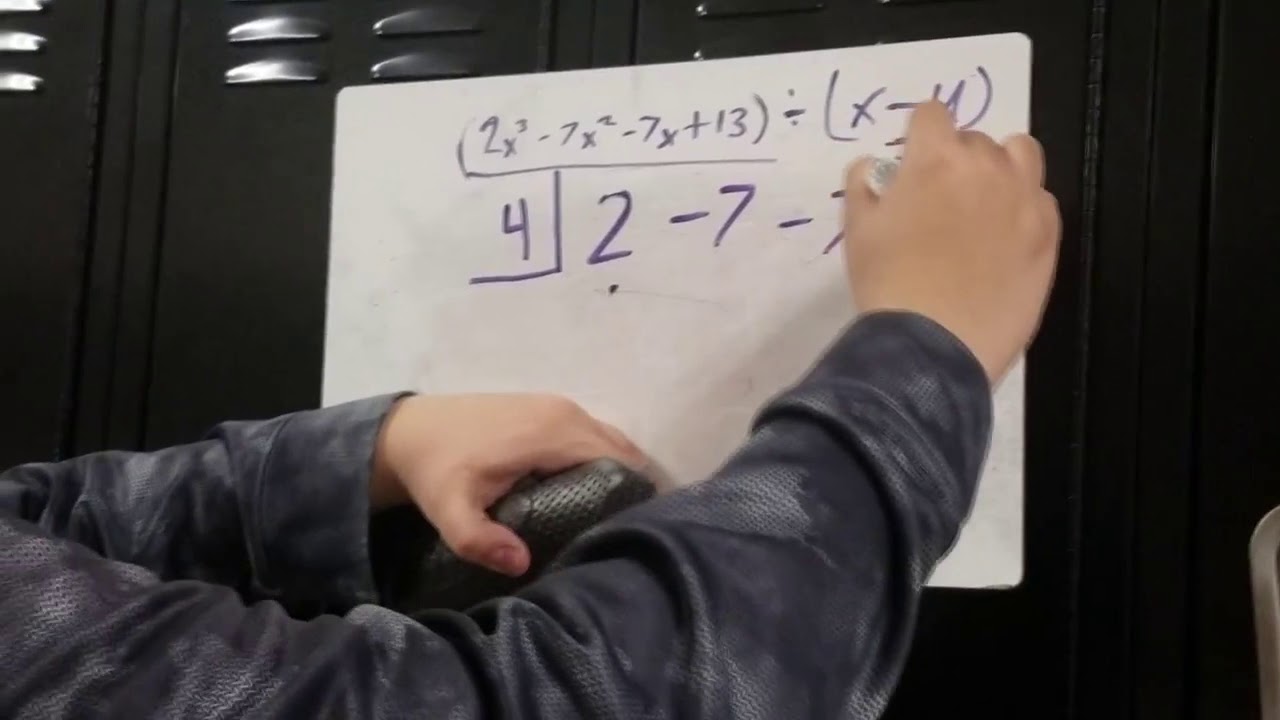 (2x³ - 7x² - 7x + 13) ÷ (x - 4)
4 2 -7 -7